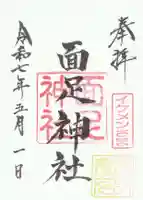 奉拝
面足神社
令和七年五月一日
面足
神社